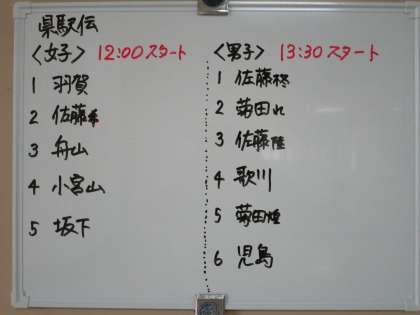 県駅伝
〈女子〉 12:00スタート
1 羽賀
2 佐藤希
3 舟山
4 小宮山
5 坂下
〈男子〉 13:30スタート
1 佐藤柊
2 菊田れ
3 佐藤陸
4 歌川
5 菊田煌
6 児島